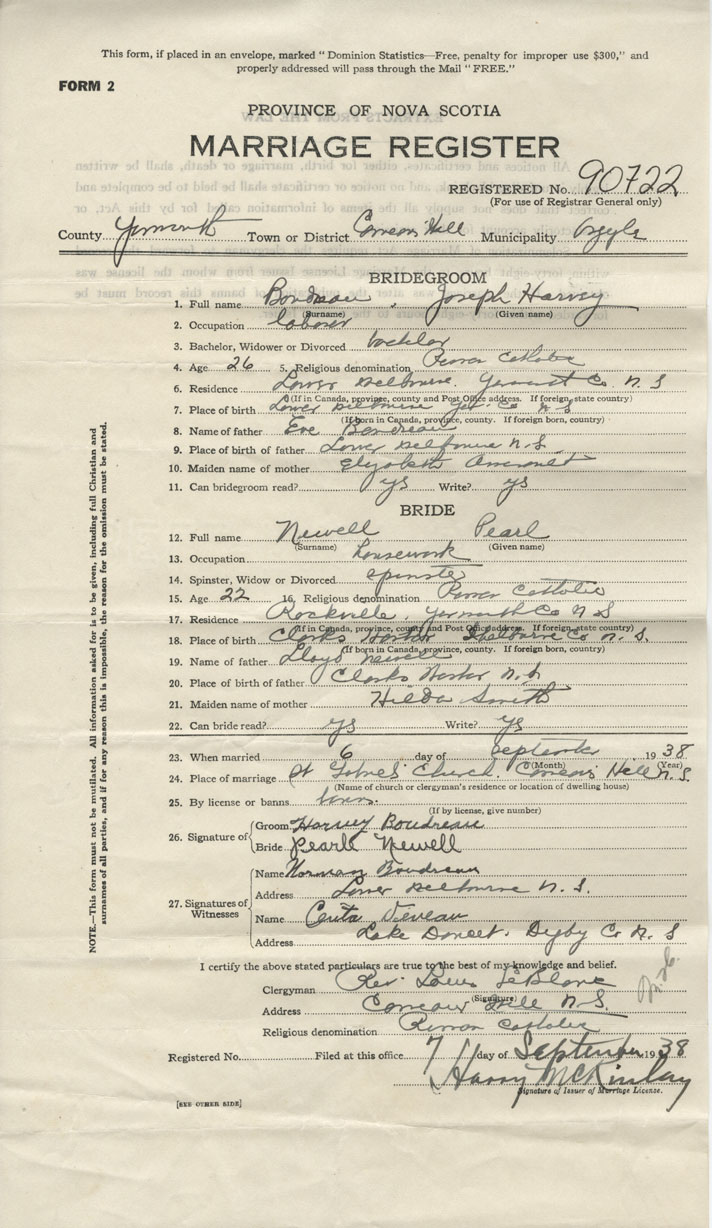 This form, if placed in an envelope, marked "Dominion Statistics—Free, penalty for improper use $300," and
properly addressed will pass through the Mail "FREE."
FORM 2
PROVINCE OF NOVA SCOTIA
MARRIAGE REGISTER
REGISTERED No. 90722
(For use of Registrar General only)
County Yarmouth Town or District Comeau's Hill Municipality Argyle
BRIDEGROOM
1. Full name Boudreau, Joseph Harvey
(Surname) (Given name)
2. Occupation laborer
3. Bachelor, Widower or Divorced
4. Age 26 5. Religious denomination Roman Catholic
6. Residence Lower Yarmouth Co. N. S
(If in Canada, province, county and Post Office address. If foreign, state country)
7. Place of birth Lower Co N S
(If born in Canada, province, county. If foreign born, country)
8. Name of father Boudreau
9. Place of birth of father Lower N. S.
10. Maiden name of mother Elizabeth
11. Can bridegroom read? ys Write? ys
BRIDE
12. Full name Newell Pearl
(Surname) (Given name)
13. Occupation housework
14. Spinster, Widow or Divorced spinster
15. Age 22 16. Religious denomination Roman Catholic
17. Residence Rockville, Yarmouth Co N S
(If in Canada, province, county and Post Office address. If foreign, state country)
18. Place of birth Clarks Harbor Shelburne Co N. S.
(If born in Canada, province, county. If foreign born, country)
19. Name of father Lloyd Newell
20. Place of birth of father Clarks Harbor N. S.
21. Maiden name of mother Hilda Smith
22. Can bride read? ys Write? ys
23. When married 6 day of September 1938
(Month) (Year)
24. Place of marriage Church. Comeau's Hill N. S.
(Name of church or clergyman's residence or location of dwelling house)
25. By license or banns
(If by license, give number)
26. Signature of Groom Harvey Boudreau
Bride Pearle Newell
27. Signatures of Witnesses Name Norman Boudreau
Address Lower N. S.
Name
Address Lake Digby Co N. S
I certify the above stated particulars are true to the best of my knowledge and belief.
Clergyman Rev. Louis LeBlanc
(Signature)
Address Comeau's Hill N. S.
Religious denomination Roman Catholic
Registered No. Filed at this office 7 day of September 1938
Harry McKinlay
Signature of Issuer of Marriage License.
[SEE OTHER SIDE]
NOTE.—This form must not be mutilated. All information asked for is to be given, including full Christian and
surnames of all parties, and if for any reason this is impossible, the reason for the omission must be stated.